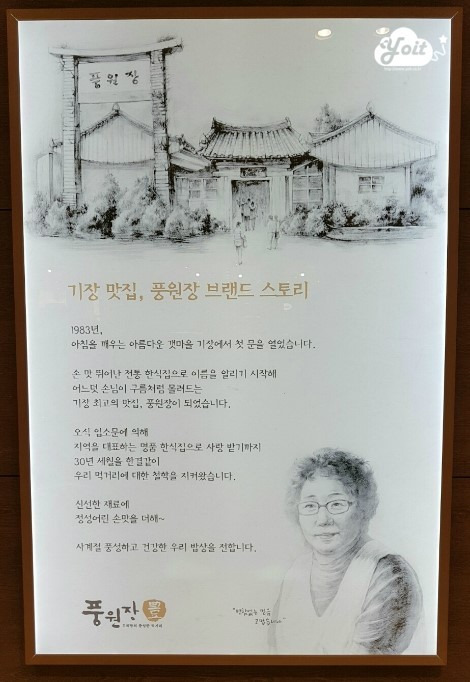 yoit
풍원장
기장 맛집, 풍원장 브랜드 스토리
1983년,
아침을 깨우는 아름다운 갯마을 기장에서 첫 문을 열었습니다.
손 맛 뛰어난 전통 한식집으로 이름을 알리기 시작해
어느덧 손님이 구름처럼 몰려드는
기장 최고의 맛집, 풍원장이 되었습니다.
오직 입소문에 의해
지역을 대표하는 명품 한식집으로 사랑 받기까지
30년 세월을 한결같이
우리 먹거리에 대한 철학을 지켜왔습니다.
신선한 재료에
정성어린 손맛을 더해~
사계절 풍성하고 건강한 우리 밥상을 전합니다.
풍원장 豊